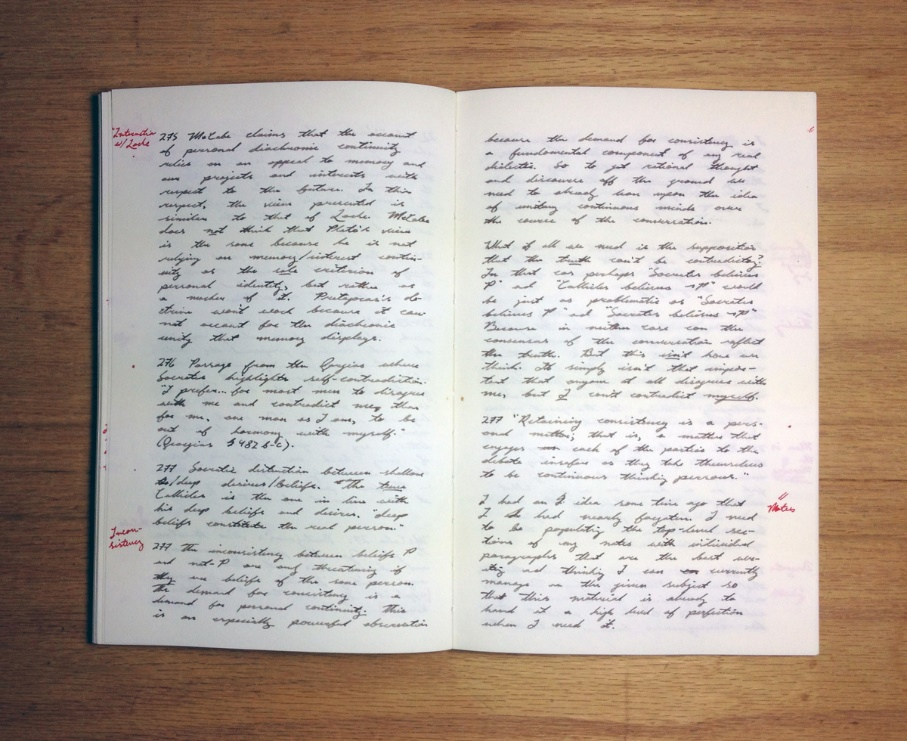 "Interaction
w/Locke
275 McCabe claims that the account
of personal diachronic continuity
relies on an appeal to memory and
our projects and interests with
respect to the future. In this
respect, the view presented is
similar to that of Locke. McCabe
does not think that Plato's view
is the same because he is not
relying on memory/interest contin-
uity as the sole criterion of
personal identity, but rather as
a marker of it. Protagoras's do-
ctrine won't work because it can
not account for the diachronic
unity that memory displays.
276 Passage from the Gorgias where
Socrates highlights self-contradiction.
"I prefer... for most men to disagree
with me and contradict me, than
for me, one man as I am, to be
out of harmony with myself."
(Gorgias § 482 b-c).
277 Socratic distinction between shallow
/deep desires/beliefs. "The true
Callicles is the one in line with
his deep beliefs and desires. "deep
beliefs constitute the real person."
Incon-
sistency
277 The inconsistency between beliefs P
and not-P are only threatening if
they are beliefs of the same person.
The demand for consistency is a
demand for personal continuity. This
is an especially powerful observation
because the demand for consistency is
a fundamental component of any real
dialectic. So to get rational thought
and discourse off the ground we
need to already have upon the idea
of unitary continuous minds over
the course of the conversation.
What if all we need is the supposition
that the truth can't be contradictory?
In that case perhaps "Socrates believes
P" and "Callicles believes ¬P" would
be just as problematic as "Socrates
believes P" and "Socrates believes ¬P"
Because in neither case can the
consensus of the conversation reflect
the truth. But this isn't how we
think. It simply isn't that impor-
tant that anyone at all disagrees with
me, but I can't contradict myself.
277 "Retaining consistency is a pers-
onal matter, that is, a matter that
engages each of the parties to the
debate insofar as they take themselves
to be continuous thinking persons."
"
Notes
I had an idea some time ago that
I had nearly forgotten. I need
to be populating the top-level sec-
tions of my notes with individual
paragraphs that are the best wri-
ting and thinking I can currently
manage on the given subject so
that this material is already to
hand at a high level of perfection
when I need it.